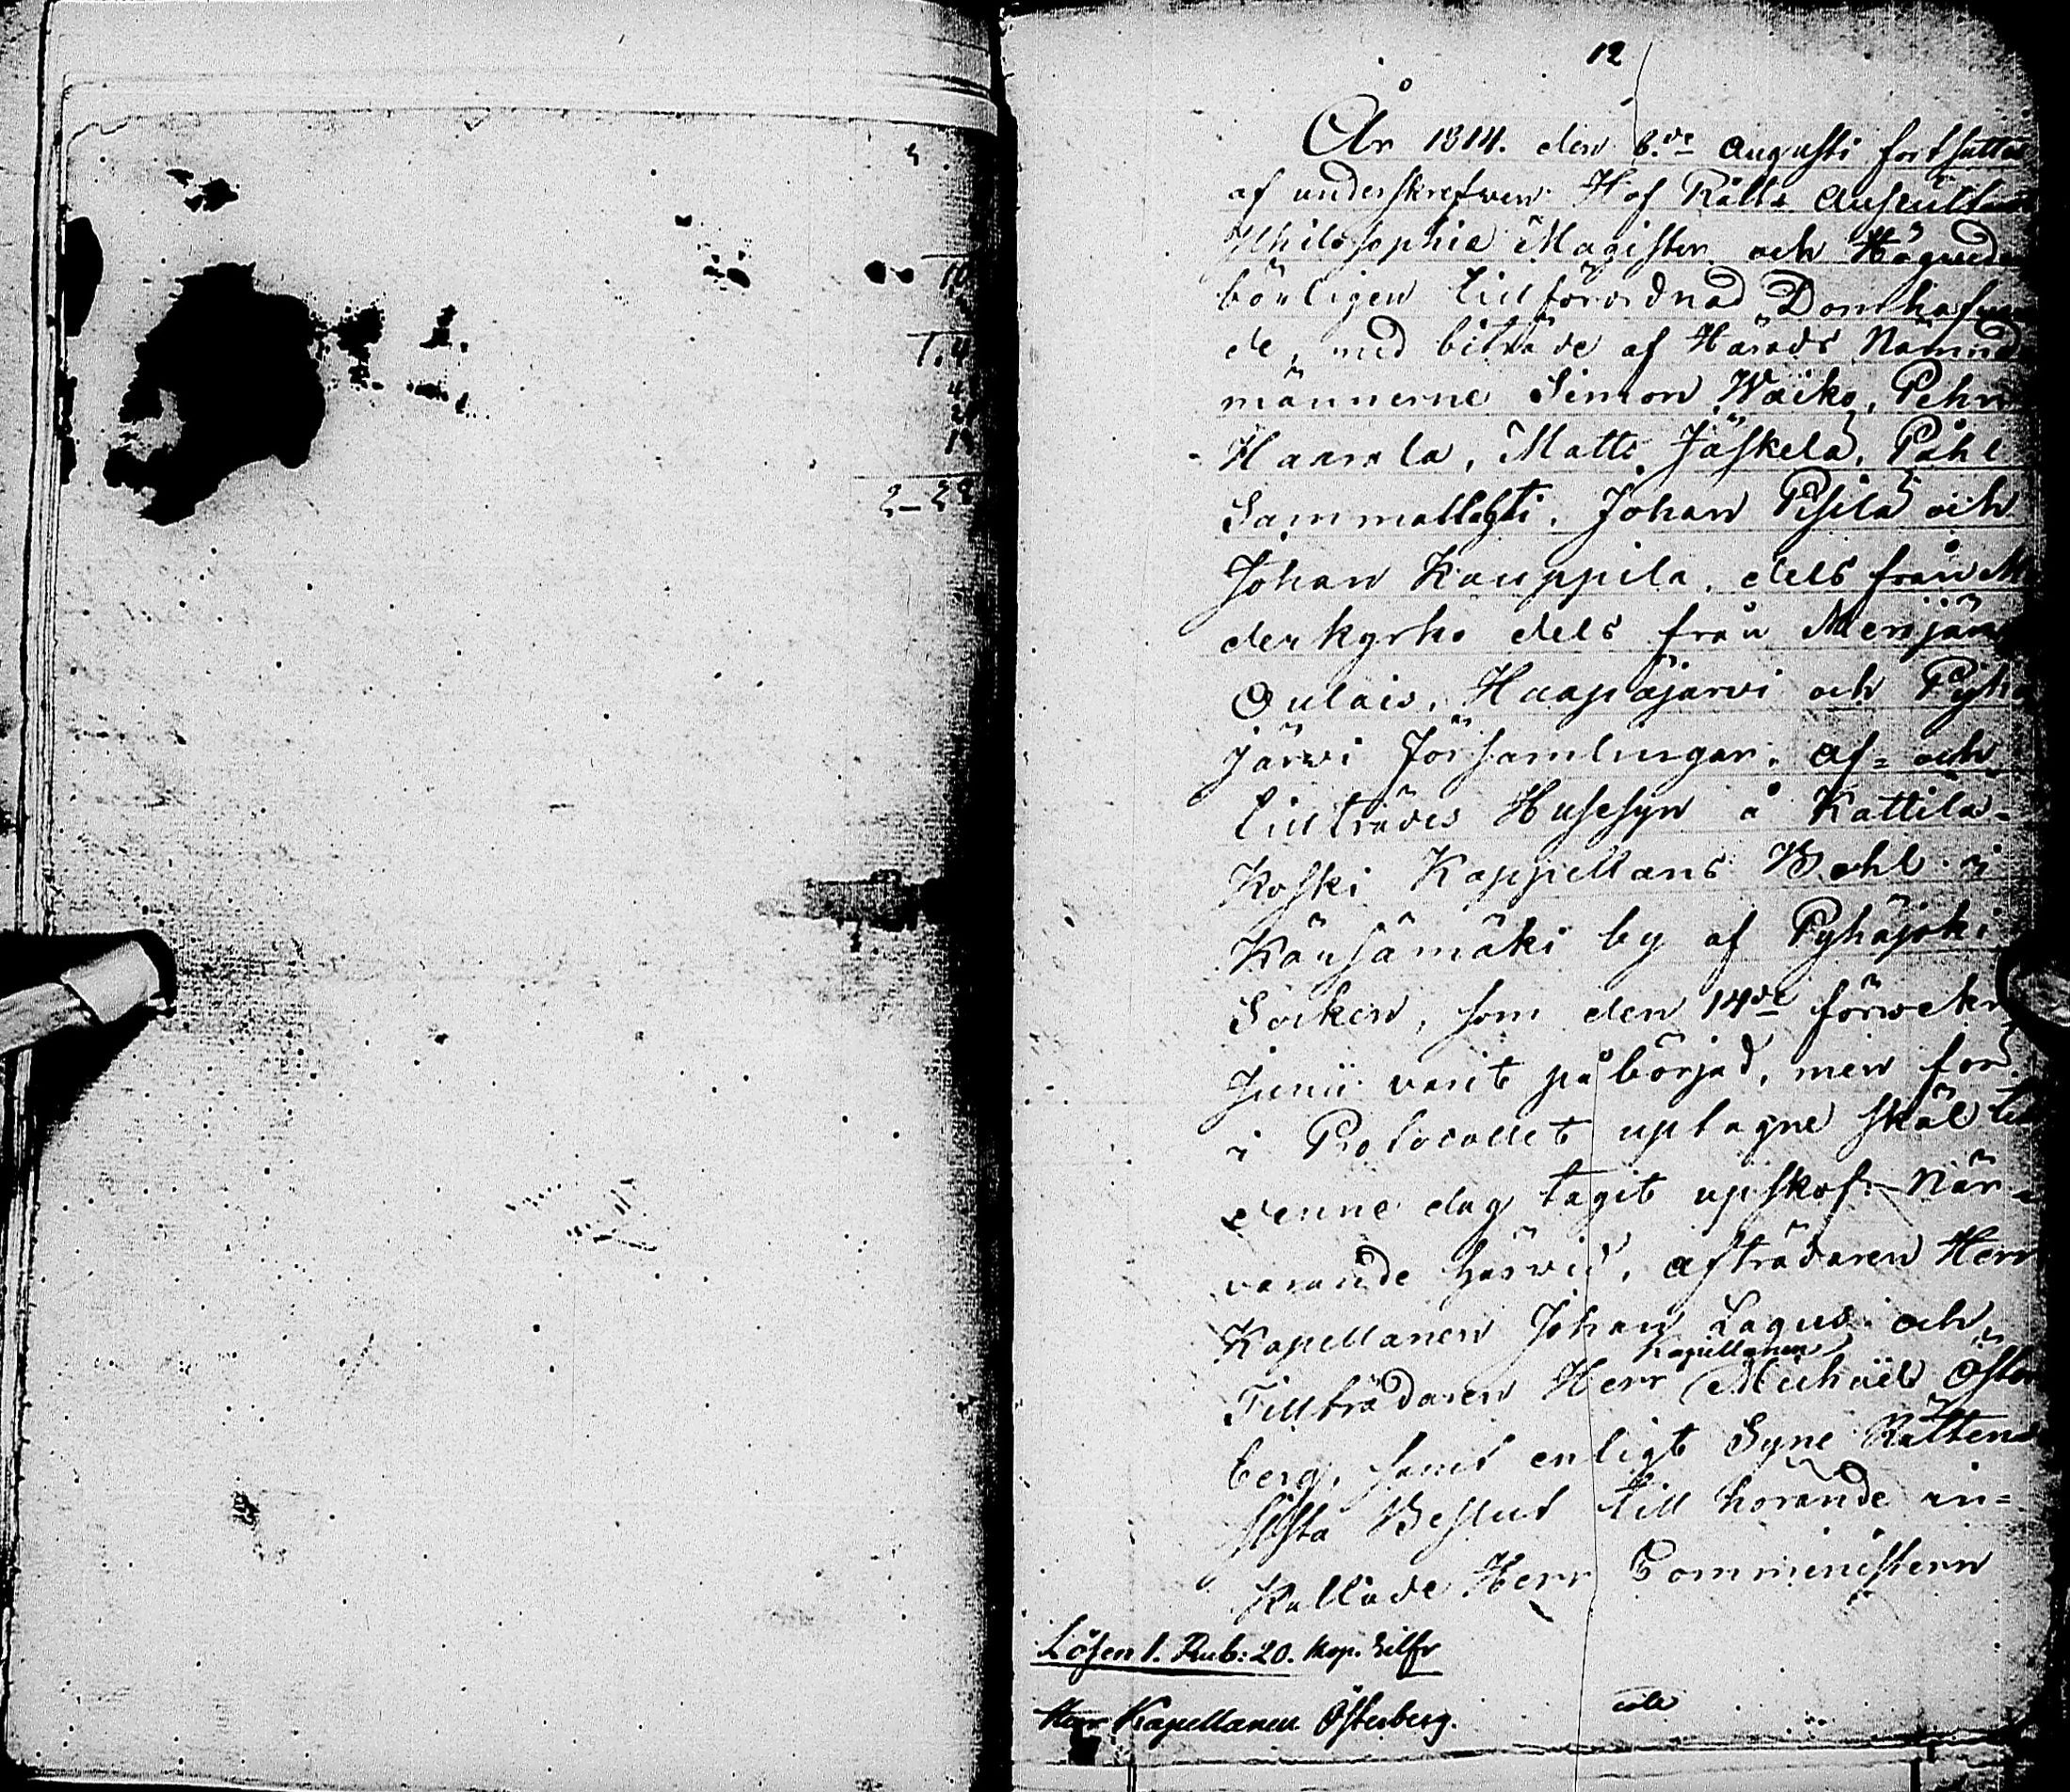 10
T. 4
4
2 - 22
12
År 1814. den 6.de Augusti fortsattes
af underskrefwen Hof Rätts Auscultant
Philosophiæ Magister och
börligen tillförordnad Domhafwan
de, med biträde af Härads Nämnde
männerne Simon Waiko, Pehr
Haarala, Matts Jäskelä, Påhl
Sammallahti, Johan Pisilä och
Johan Kauppila, dels från Mo
derkyrko dels från Merijärvi
Oulais, Haapajärwi och Pyhä
järwi Församlingar, af- och
tillträdes Husesyn å Kattila-
Koski Kappellans Bohl i
Kärsämäki by af Pyhäjoki
Socken, som den 14de förwekne
Junii varit påbörjad, men för
i Protocollet uptagne skäl till
denne dag tagit upskof. När-
varande härwid, afträdaren Herr
Kapellanen Johan Lagus och
Kapellanen
Tillträdaren Herr Michaël Öster
berg, samt enligt Syne Rättens
sista Beslut till hörande in-
kallade Herr Comministern
Lösen 1. Rub: 20. Kop. Silfr
Herr Kapellanen Österberg.